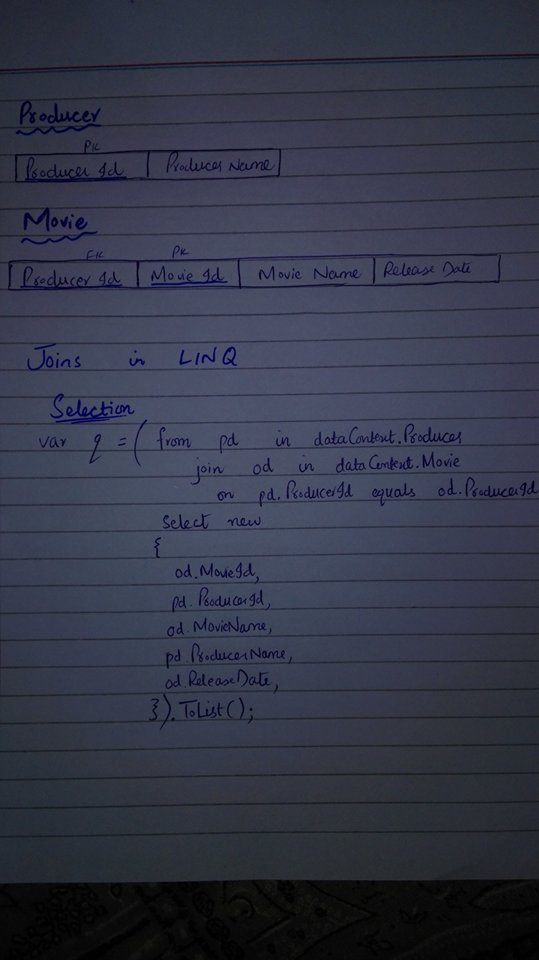 Producer
PK
Producer Id Producer Name
Movie
FK PK
Producer Id Movie Id Movie Name Release Date
Joins in LINQ
Selection
var q = ( from pd in dataContext.Producer
join od in dataContext.Movie
on pd.ProducerId equals od.ProducerId
Select new
{
od.MovieId,
pd.ProducerId,
od.MovieName,
pd.ProducerName,
od.ReleaseDate,
}).ToList();